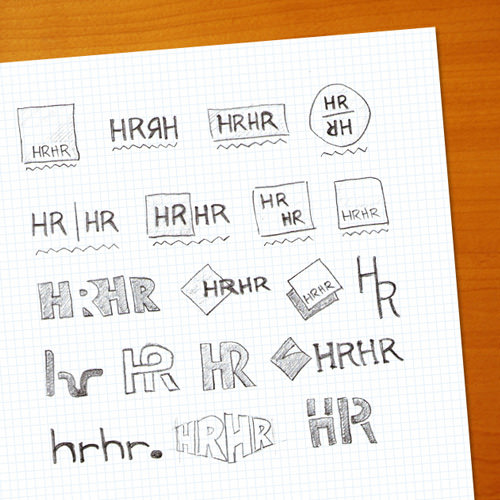 HRHR
HRЯH
HRHR
HR
HR
HR | HR
HRHR
HR
HR
HRHR
HRHR
HRHR
HRHR
HR
hr
HR
HR
HRHR
hrhr.
HRHR
HR